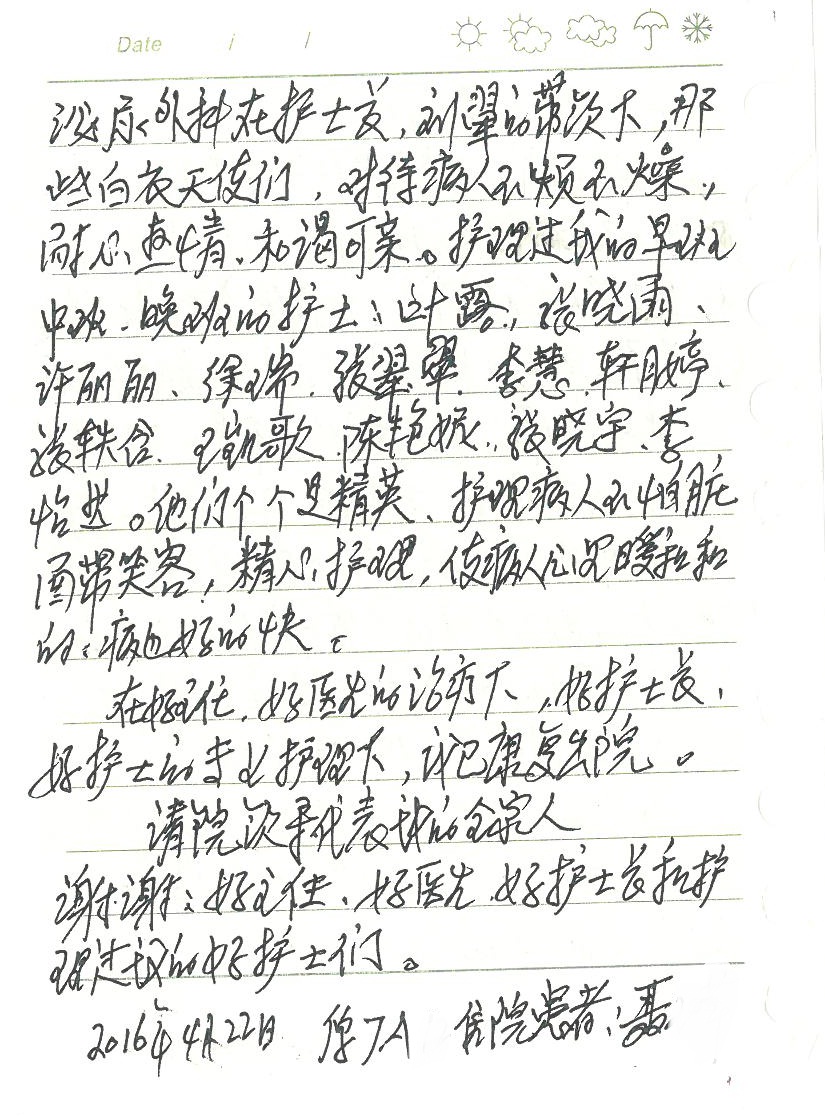 Date / /
泌尿外科在护士长，刘翠的带领下，那
些白衣天使们，对待病人不烦不燥，
耐心、热情、和谒可亲。护理过我的早班
中班、晚班的护士：叶露、张晓雨、
许丽丽、徐瑞、张翠翠、李慧、轩月婷、
张轶含、王凯歌、陈艳妮、张晓宇、李
怡然。他们个个是精英、护理病人不怕脏
面带笑容，精心护理，使病人心里暖和和
的；病也好的快。
在好主任、好医生的治疗下，好护士长、
好护士的专业护理下，我已康复出院。
请院领导代表我的全家人
谢谢：好主任、好医生、好护士长和护
理过我的好护士们。
2016年4月22日 住院患者：聂